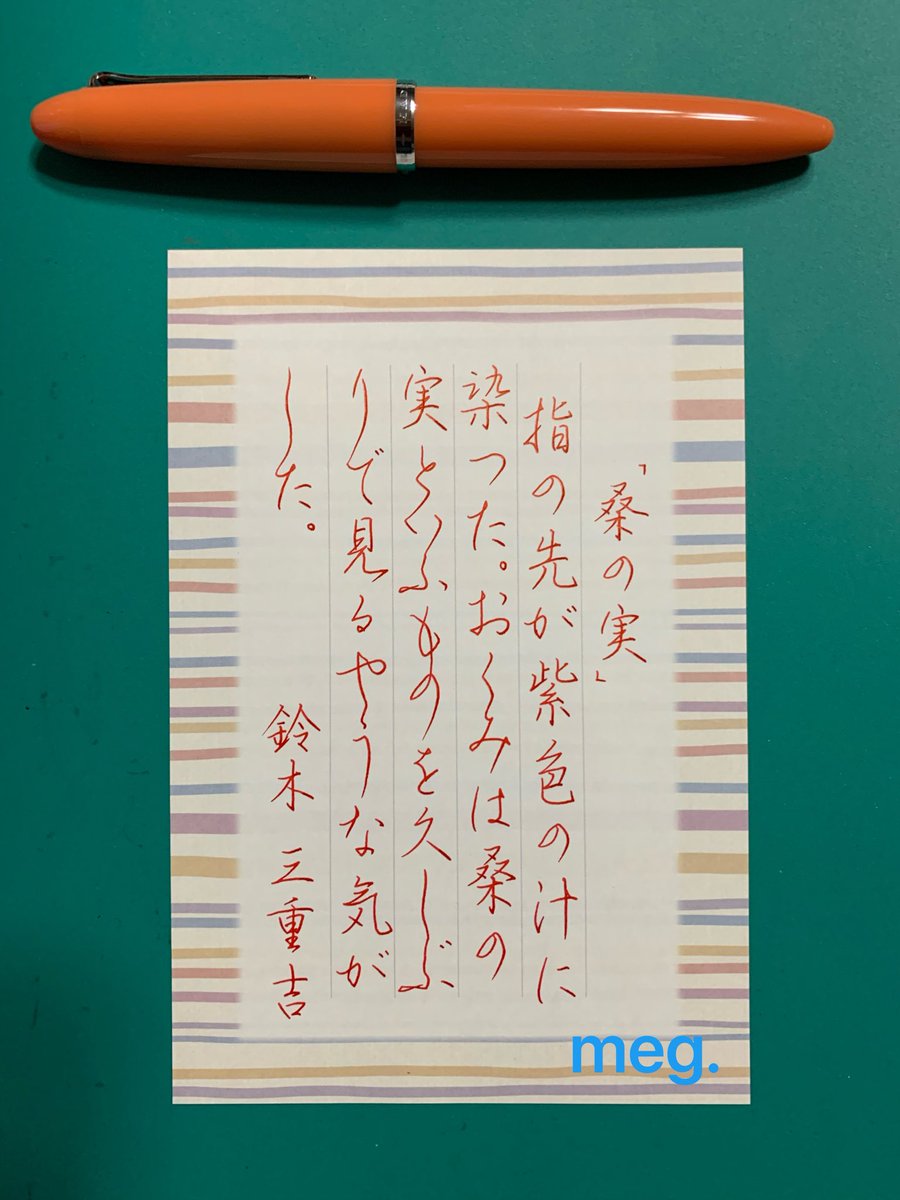 「桑の実」
指の先が紫色の汁に
染つた。おくみは桑の
実といふものを久しぶ
りで見るやうな気が
した。
鈴木 三重吉
meg.